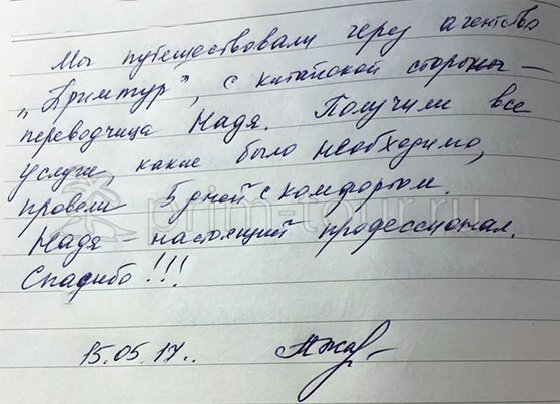 Мы путешествовали через агентство
„Примтур", с китайской стороны —
переводчица Надя. Получили все
услуги, какие было необходимо,
провели 5 дней с комфортом.
Надя — настоящий профессионал.
Спасибо!!!
prim-tour.ru
15.05.17..